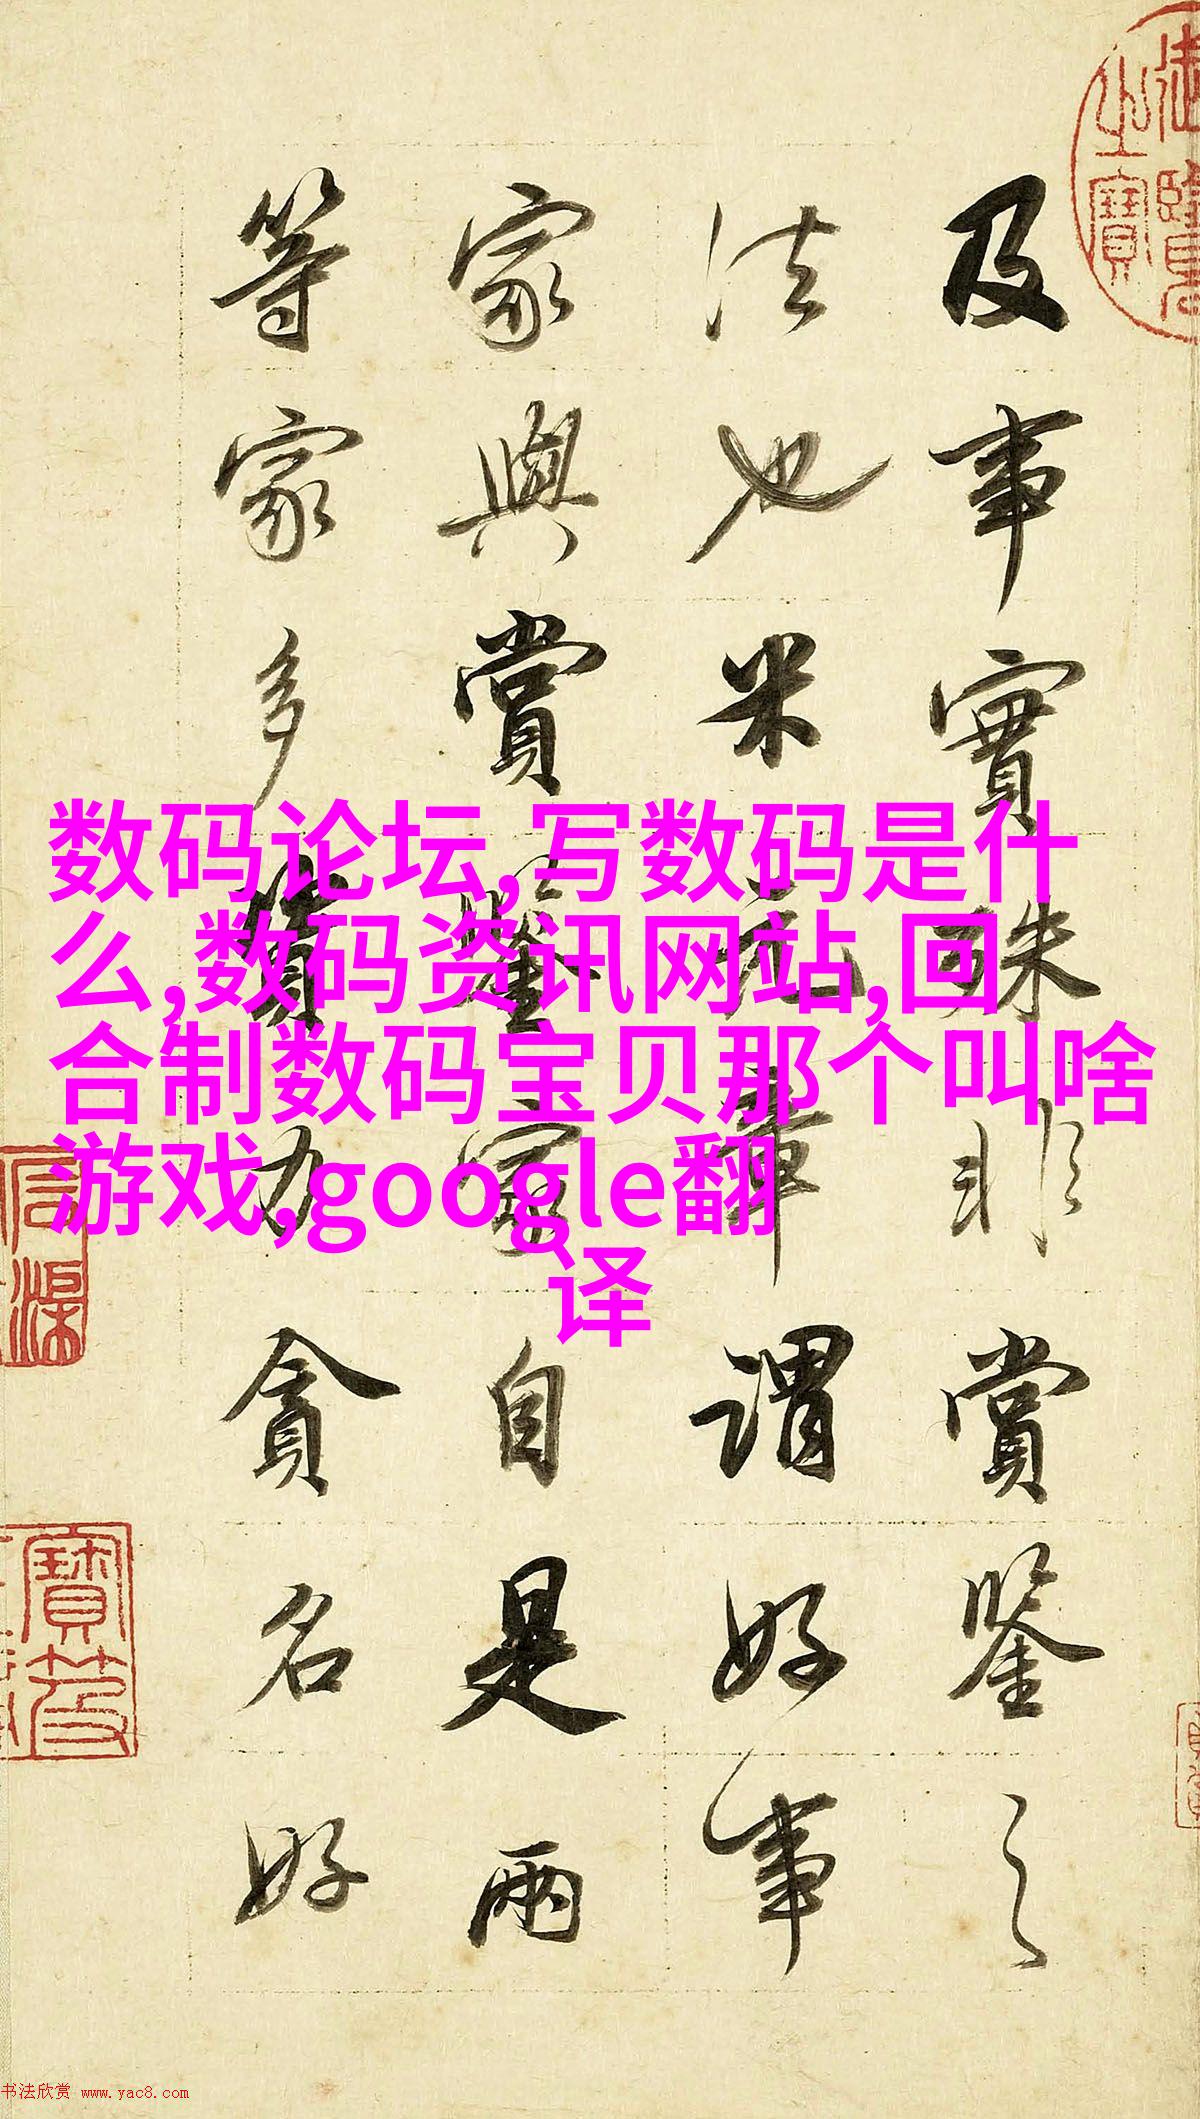 及事實殊非賞鑒之
法也米元章謂好事
家與賞鑒家自是兩
等家多資力貪名好
数码论坛,写数码是什
么,数码资讯网站,回
合制数码宝贝那个叫啥
游戏,google翻
译
书法欣赏 www.yac8.com